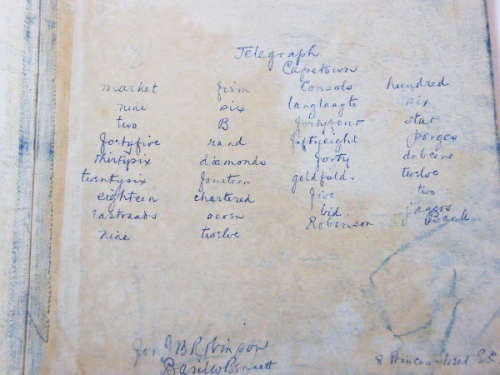 Telegraph
Capetown
market firm Consols hundred
nine six langlaagte six
two B fortyfour star
fortyfive rand fiftyeight porges
thirtysix diamonds forty debeers
twentysix fourteen goldfields twelve
eighteen chartered five two
eastrands acorn bid jagers
nine twelve Robinson Bank
for J B Robinson
Basil Bennett
8 Princes Street EC